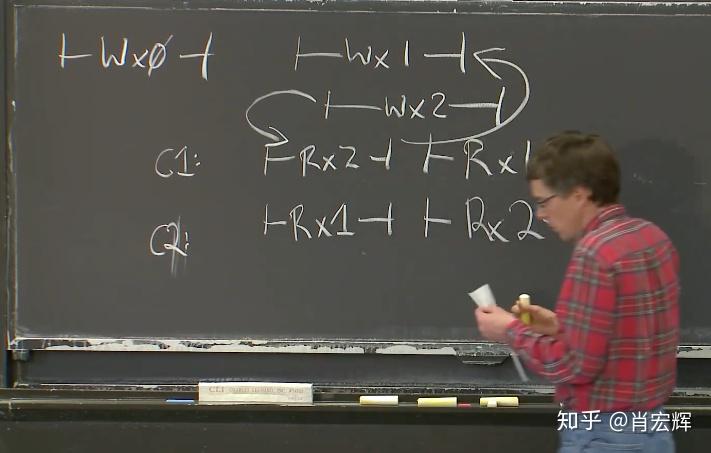 ⊢Wx∅⊣ ⊢Wx1⊣
⊢Wx2⊣
C1: ⊢Rx2⊣ ⊢Rx1
C2: ⊢Rx1⊣ ⊢Rx2
知乎 @肖宏辉